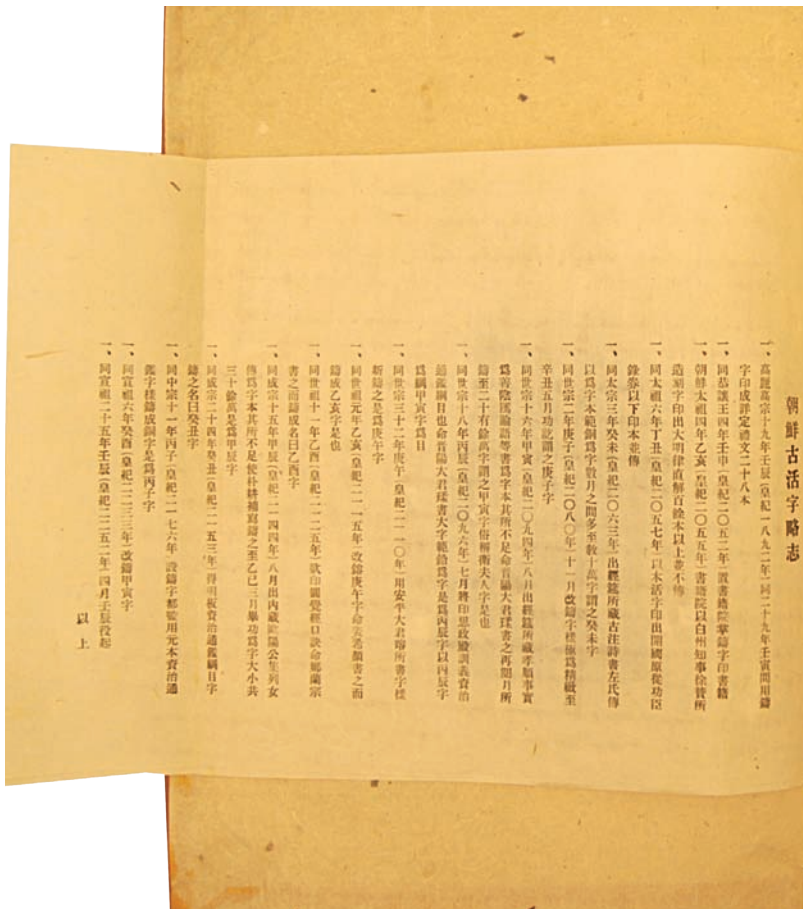 朝鮮古活字略志
一、高麗高宗十九年壬辰(皇紀一八九二年)同二十九年壬寅間用鑄
字印成詳定禮文二十八本
一、同恭讓王四年壬申(皇紀二〇五二年)置書籍院掌鑄字印書籍
一、朝鮮太祖四年乙亥(皇紀二〇五五年)書籍院以白州知事徐贊所
造刻字印出大明律直解百餘本以上並不傳
一、同太祖六年丁丑(皇紀二〇五七年)以木活字印出開國原從功臣
錄券以下印本並傳
一、同太宗三年癸未(皇紀二〇六三年)出經筵所藏古注詩書左氏傳
以爲字本範銅爲字數月之間多至數十萬字謂之癸未字
一、同世宗二年庚子(皇紀二〇八〇年)十一月改鑄字樣極爲精緻至
辛丑五月功訖謂之庚子字
一、同世宗十六年甲寅(皇紀二〇九四年)八月出經筵所藏孝順事實
爲善陰騭論語等書爲字本其所不足命首陽大君瑈書之再閱月所
鑄至二十有餘萬字謂之甲寅字俗稱衛夫人字是也
一、同世宗十八年丙辰(皇紀二〇九六年)七月將印思政殿訓義資治
通鑑綱目也命首陽大君瑈書大字範鉛爲字是爲丙辰字以丙辰字
爲綱甲寅字爲目
一、同世宗三十二年庚午(皇紀二一一〇年)用安平大君瑢所書字樣
新鑄之是爲庚午字
一、同世祖元年乙亥(皇紀二一一五年)改鑄庚午字命姜希顏書之而
鑄成乙亥字是也
一、同世祖十一年乙酉(皇紀二一二五年)欲印圓覺經口訣命鄭蘭宗
書之而鑄成名曰乙酉字
一、同成宗十五年甲辰(皇紀二一四四年)八月出內藏歐陽公集列女
傳爲字本其所不足使朴耕補寫鑄之至乙巳三月畢功爲字大小共
三十餘萬是爲甲辰字
一、同成宗二十四年癸丑(皇紀二一五三年)得明板資治通鑑綱目字
鑄之名曰癸丑字
一、同中宗十一年丙子(皇紀二一七六年)設鑄字都監用元本資治通
鑑字樣鑄成銅字是爲丙子字
一、同宣祖六年癸酉(皇紀二二三三年)改鑄甲寅字
一、同宣祖二十五年壬辰(皇紀二二五二年)四月壬辰役起
以上